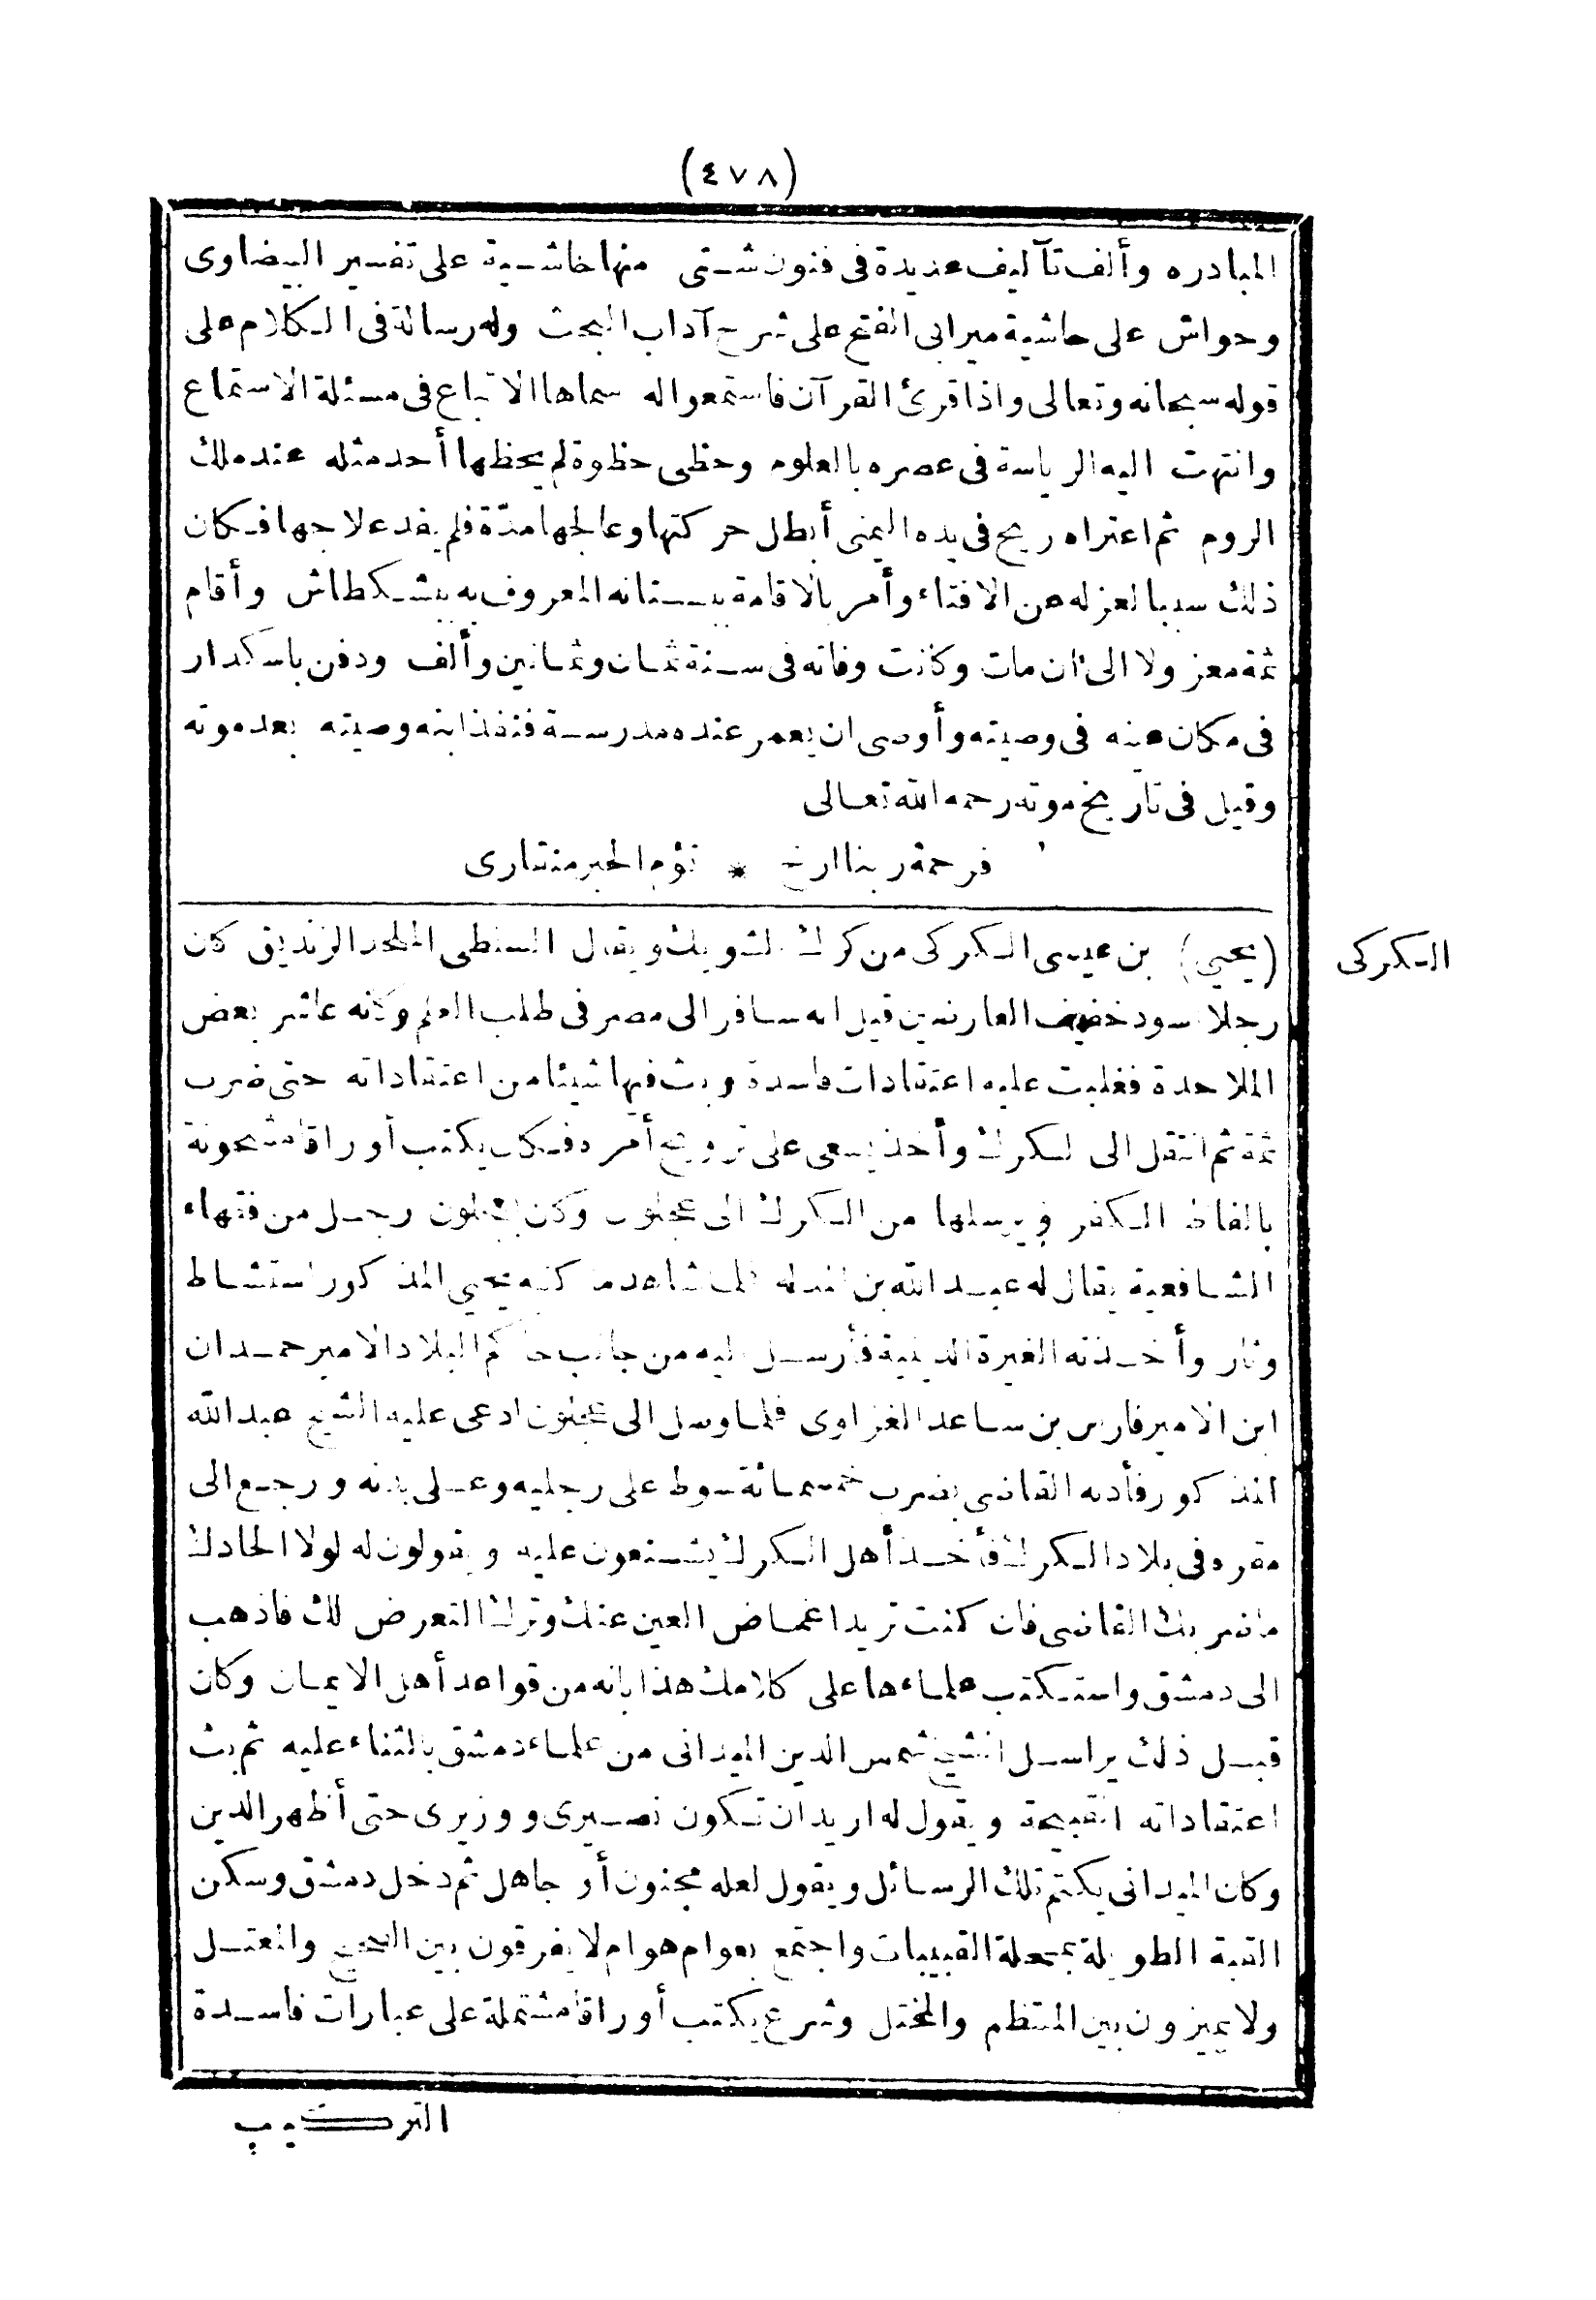 (٤٧٨)
المبادره وألف تآليف عديدة فى فنون شتى منها حاشية على تفسير البيضاوى
وحواش على حاشية مير ابى الفتح على شرح آداب البحث وله رسالة فى الكلام على
قوله سبحانه وتعالى واذا قرئ القرآن فاستمعوا له سماها الاتباع فى مسئلة الاستماع
وانتهت اليه الرياسة فى عصره بالعلوم وحظى حظوة لم يحظها أحد مثله عند ملك
الروم ثم اعتراه ريح فى يده اليمنى أبطل حركتها وعالجها مدّة فلم يفد علاجها فكان
ذلك سببا لعزله عن الافتاء وأمر بالاقامة ببستانه المعروف به ببشكطاش وأقام
ثمة معزولا الى ان مات وكانت وفاته فى سنة ثمان وثمانين وألف ودفن باسكدار
فى مكان عينه فى وصيته وأوصى ان يعمر عنده مدرسة فنفذ ابنه وصيته بعد موته
وقيل فى تاريخ موته رحمه الله تعالى
فرحمة ربنا ارخ * تؤم الحبر منقارى
(يحيى) بن عيسى الكركى من كرك الشوبك ويقال السلطى الملحد الزنديق كان
رجلا اسود خفيف العارضين قيل انه سافر الى مصر فى طلب العلم وكانه عاشر بعض
الملاحدة فغلبت عليه اعتقادات فاسدة وبث فيها شيئا من اعتقاداته حتى ضرب
ثمة ثم انتقل الى الكرك وأخذ يسعى على ترويج أمره فكان يكتب أوراقا مشحونة
بالفاظ الكفر ويرسلها من الكرك الى عجلون وكان بعجلون رجل من فقهاء
الشافعية يقال له عبد الله بن المدله فلما شاهد ما كتبه يحيى المذكور استشاط
وثار وأخذته الغيرة الدينية فأرسل اليه من جانب حاكم البلاد الامير حمدان
ابن الامير فارس بن ساعد الغزاوى فلما وصل الى عجلون ادعى عليه الشيخ عبد الله
المذكور فأدبه القاضى بضرب خمسمائة سوط على رجليه وعلى بدنه ورجع الى
مقره فى بلاد الكرك فأخذ أهل الكرك يشنعون عليه ويقولون له لولا الحادك
ما ضربك القاضى فان كنت تريد اغماض العين عنك وترك التعرض لك فاذهب
الى دمشق واستكتب علماءها على كلامك هذا بانه من قواعد أهل الايمان وكان
قبل ذلك يراسل الشيخ شمس الدين الميدانى من علماء دمشق بالثناء عليه ثم بث
اعتقاداته القبيحة ويقول له اريد ان تكون نصيرى ووزيرى حتى أظهر الدين
وكان الميدانى يكتم تلك الرسائل ويقول لعله مجنون أو جاهل ثم دخل دمشق وسكن
القبة الطويلة بمحلة القبيبات واجتمع بعوام هوام لا يفرقون بين الصحيح والمعتل
ولا يميزون بين المنتظم والمختل وشرع يكتب أوراقا مشتملة على عبارات فاسدة
التركيب
الكركى